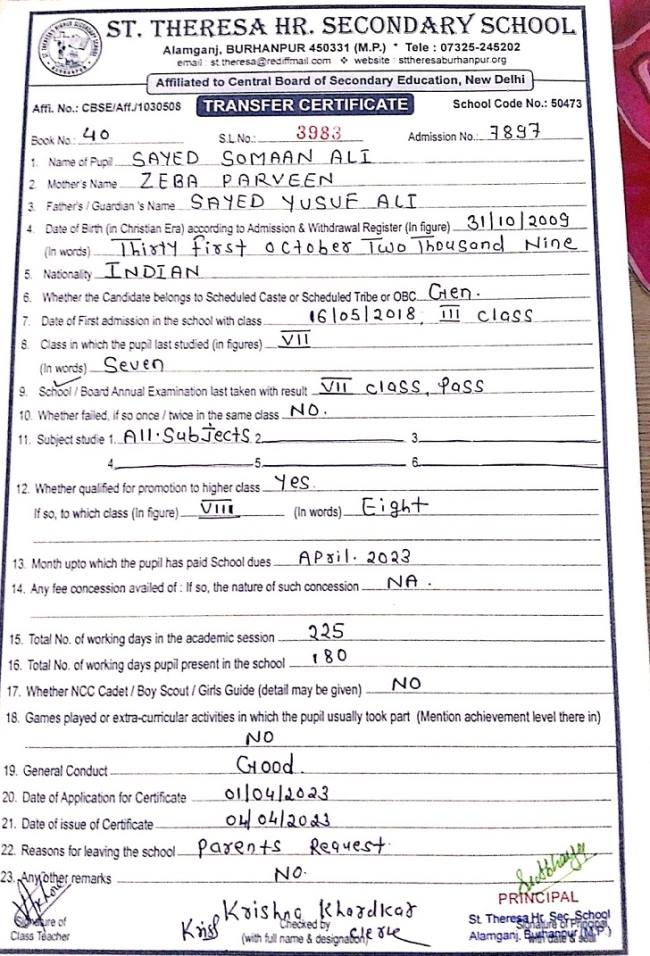 ST. THERESA HR. SECONDARY SCHOOL
Alamganj, BURHANPUR 450331 (M.P.) * Tele : 07325-245202
email : st.theresa@rediffmail.com ❖ website : sttheresaburhanpur.org
Affiliated to Central Board of Secondary Education, New Delhi
Affi. No.: CBSE/Aff./1030508 TRANSFER CERTIFICATE School Code No.: 50473
Book No.: 40 S.L No.: 3983 Admission No.: 7897
1. Name of Pupil SAYED SOMAAN ALI
2. Mother's Name ZEBA PARVEEN
3. Father's / Guardian 's Name SAYED YUSUF ALI
4. Date of Birth (in Christian Era) according to Admission & Withdrawal Register (In figure) 31/10/2009
(In words) Thirty first october Two Thousand Nine
5. Nationality INDIAN
6. Whether the Candidate belongs to Scheduled Caste or Scheduled Tribe or OBC Gen.
7. Date of First admission in the school with class 16/05/2018, III class
8. Class in which the pupil last studied (in figures) VII
(In words) Seven
9. School / Board Annual Examination last taken with result VII class, Pass
10. Whether failed, if so once / twice in the same class NO.
11. Subject studie 1. All.Subjects 2. 3.
4. 5. 6.
12. Whether qualified for promotion to higher class Yes
If so, to which class (In figure) VIII (In words) Eight
13. Month upto which the pupil has paid School dues April. 2023
14. Any fee concession availed of : If so, the nature of such concession NA.
15. Total No. of working days in the academic session 225
16. Total No. of working days pupil present in the school 180
17. Whether NCC Cadet / Boy Scout / Girls Guide (detail may be given) NO
18. Games played or extra-curricular activities in which the pupil usually took part (Mention achievement level there in)
NO
19. General Conduct Good.
20. Date of Application for Certificate 01/04/2023
21. Date of issue of Certificate 04/04/2023
22. Reasons for leaving the school Parents Request.
23. Any other remarks NO.
PRINCIPAL
Krishna Khardkar
Signature of Checked by St. Theresa Hr. Sec. School
Class Teacher (with full name & designation) Clerk Alamganj, Burhanpur (M.P.)